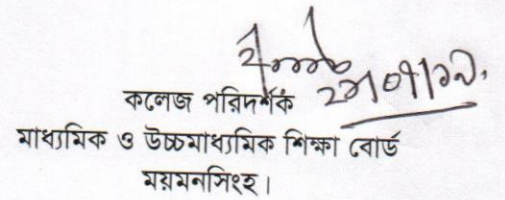 কলেজ পরিদর্শক
মাধ্যমিক ও উচ্চমাধ্যমিক শিক্ষা বোর্ড
ময়মনসিংহ।